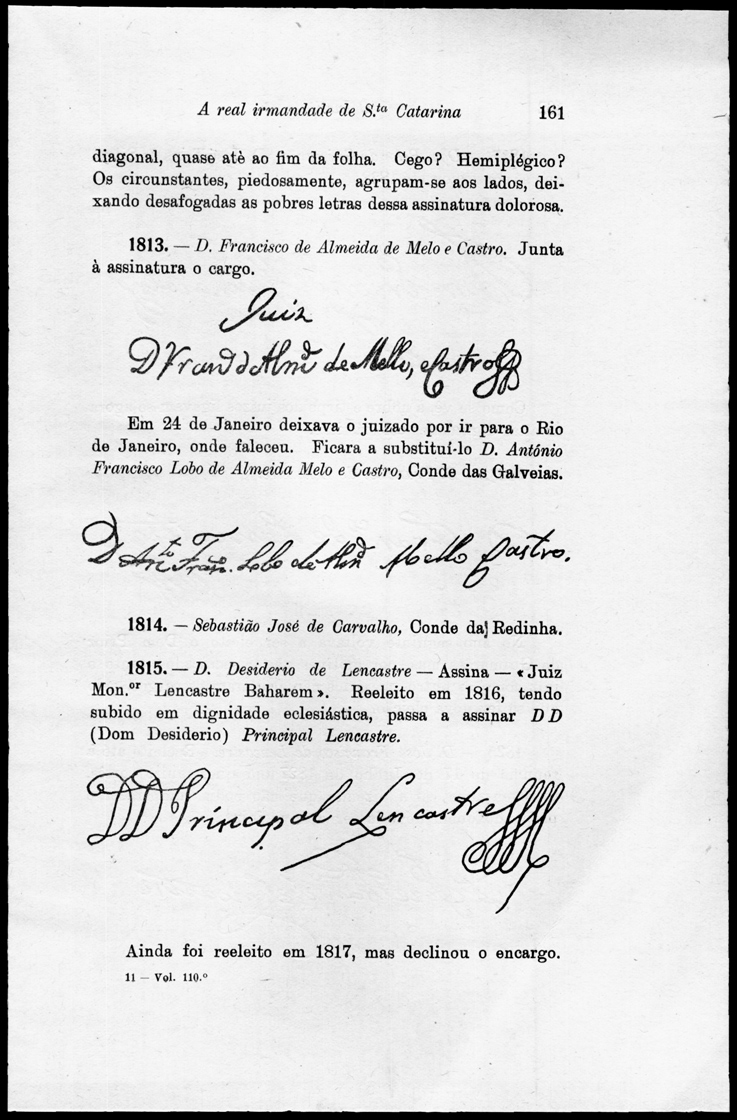 A real irmandade de S.ta Catarina 161
diagonal, quase atè ao fim da folha. Cego? Hemiplégico?
Os circunstantes, piedosamente, agrupam-se aos lados, dei-
xando desafogadas as pobres letras dessa assinatura dolorosa.
1813. — D. Francisco de Almeida de Melo e Castro. Junta
à assinatura o cargo.
Juiz
D Fran.co d Alm.da de Mello, e Castro
Em 24 de Janeiro deixava o juizado por ir para o Rio
de Janeiro, onde faleceu. Ficara a substituí-lo D. António
Francisco Lobo de Almeida Melo e Castro, Conde das Galveias.
D Ant.to Fran.co Lobo de Alm.da Mello Castro.
1814. — Sebastião José de Carvalho, Conde da Redinha.
1815. — D. Desiderio de Lencastre — Assina — «Juiz
Mon.or Lencastre Baharem». Reeleito em 1816, tendo
subido em dignidade eclesiástica, passa a assinar D D
(Dom Desiderio) Principal Lencastre.
DD Principal Lencastre
Ainda foi reeleito em 1817, mas declinou o encargo.
11 — Vol. 110.º